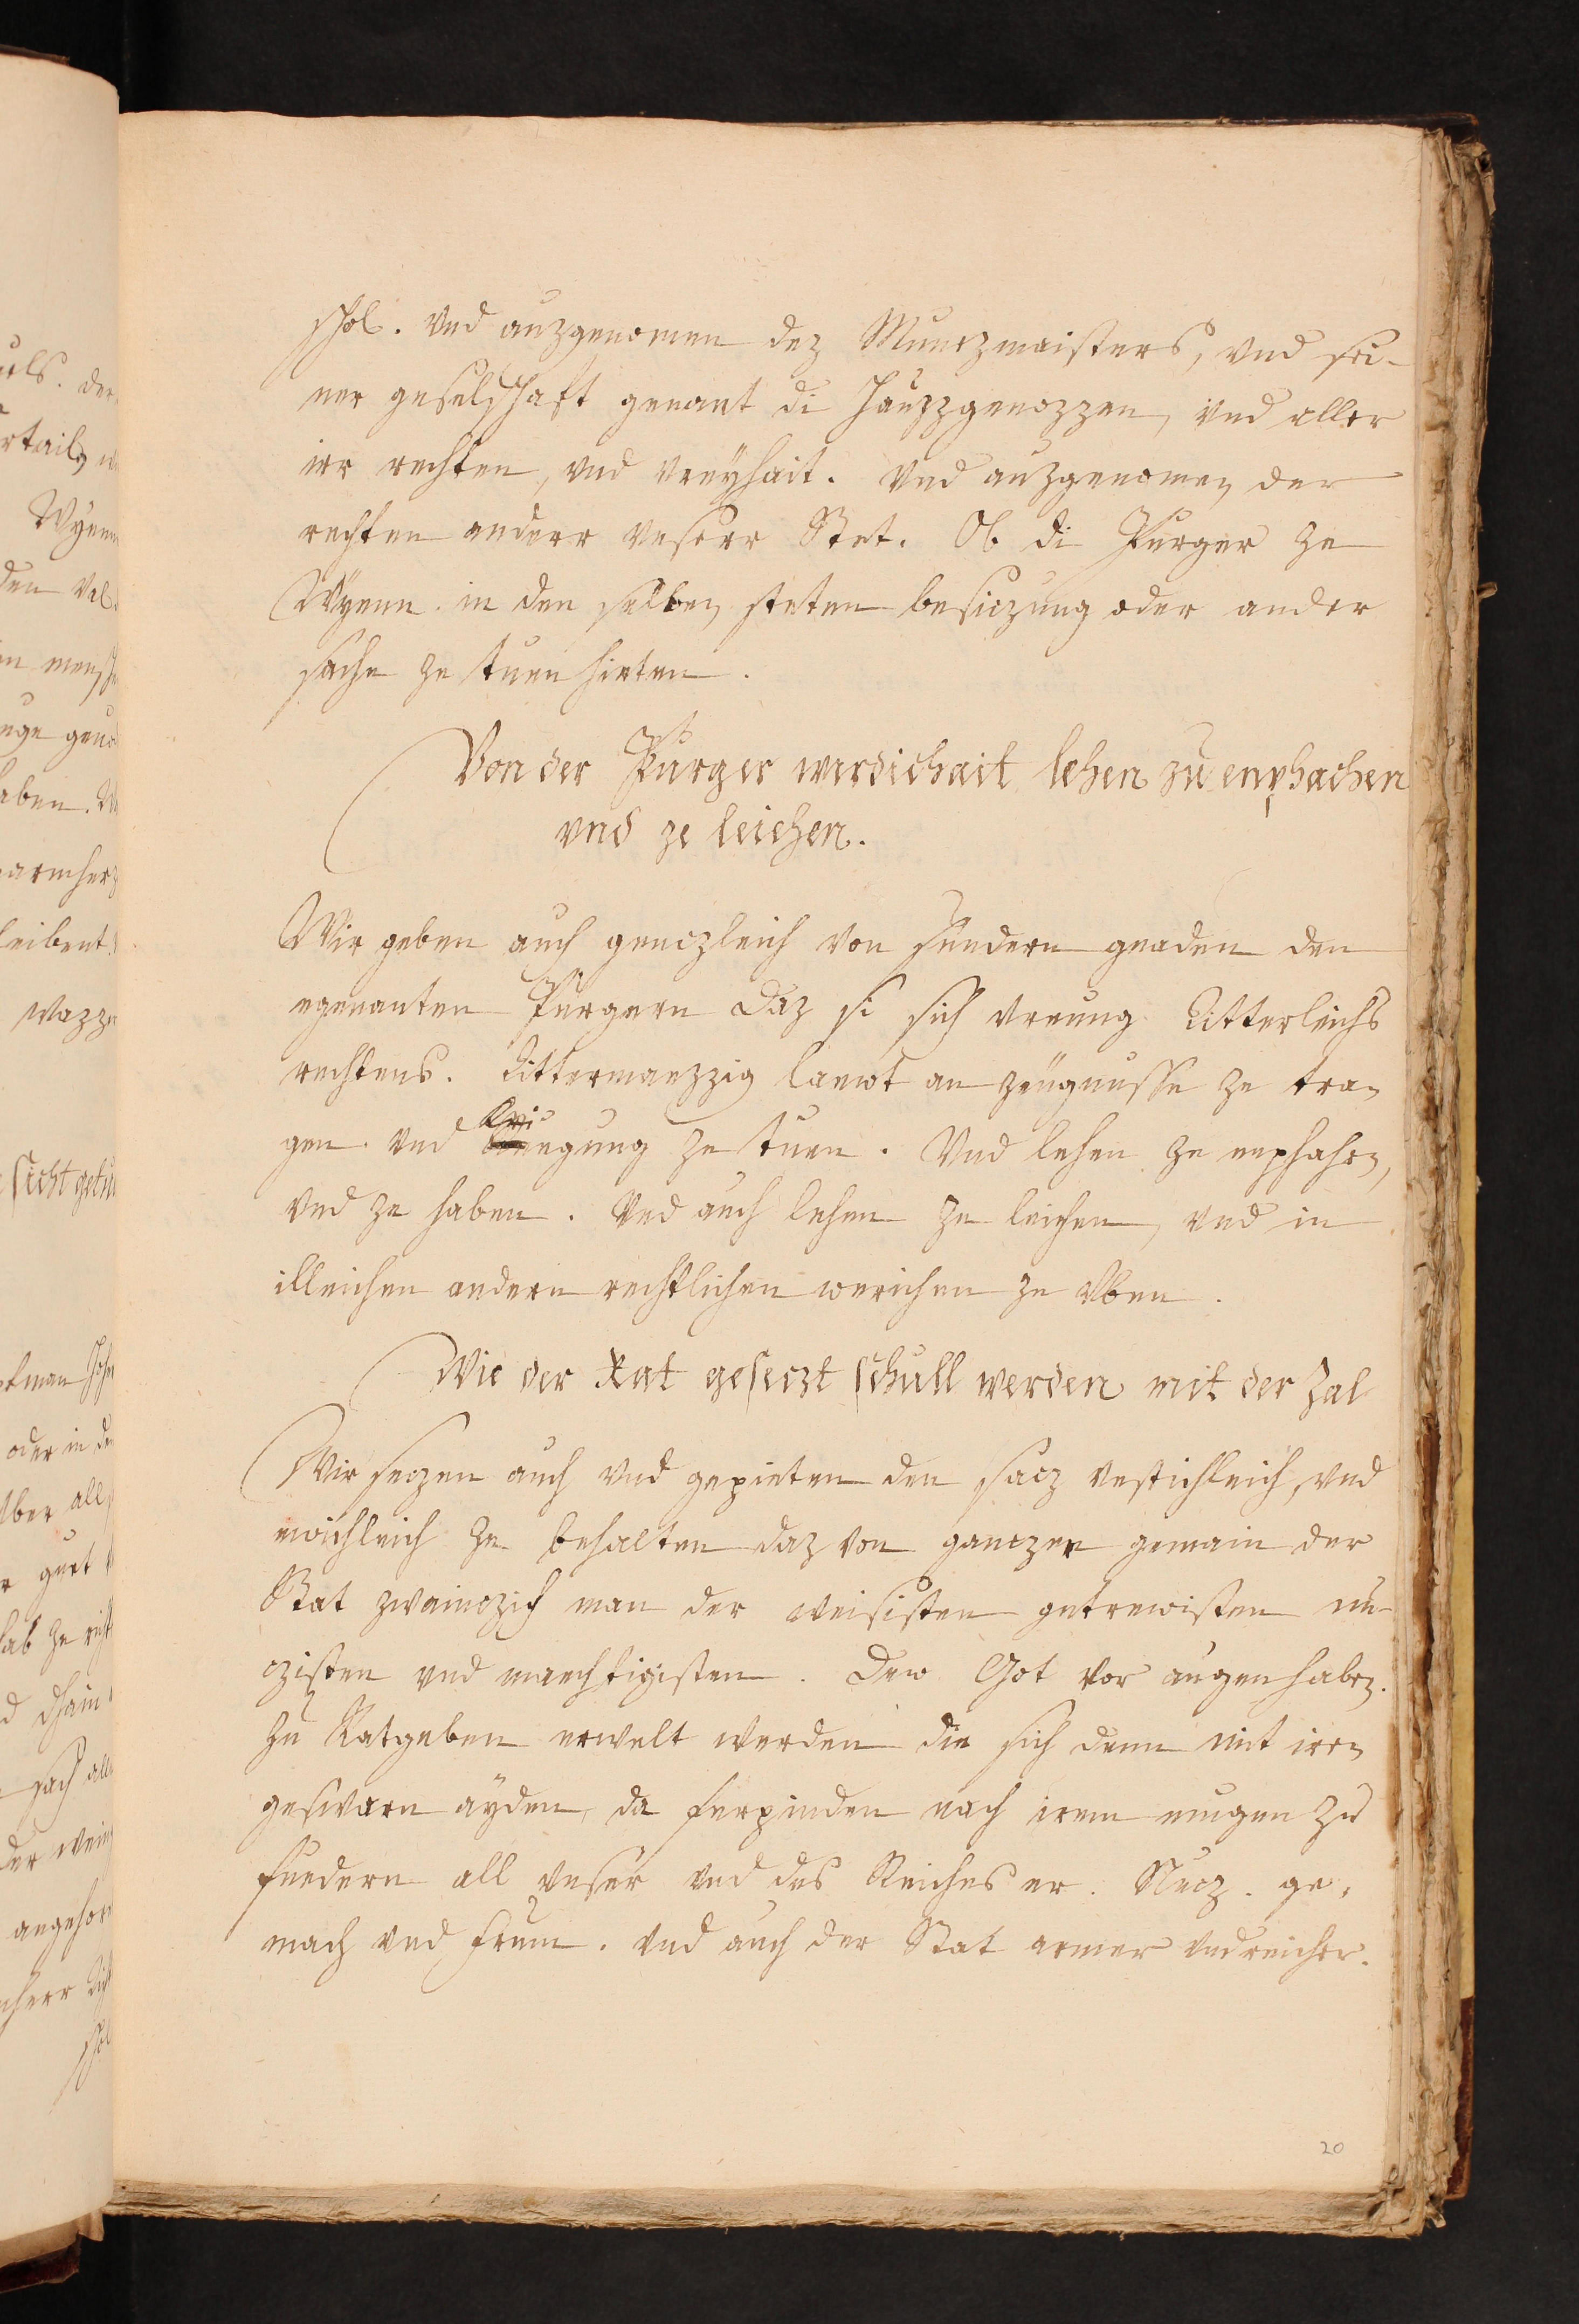 schol. Vnd auzgenomen dez Munczmaisters, vnd sei-
ner geselschaft genant di Hauzzgenozzen, vnd aller
irr rechten, vnd vreÿhait. Vnd auzgenomen der
rechten anderr vnserr Stet. Ob di Purger ze
Wÿenn. in den selben steten besiczung oder ander
sache ze tuen hieten.
Von der Purger werdichait lehen zu enphachen
vnd ze leichen.
Wir geben auch genczleich von sundern gnaden den
egenanten Purgern Daz si sich vreung Ritterleichs
rechtens. Rittermaezzig laewt an zeugnusse ze tra-
gen. vnd Chriegung ze tuen. Vnd lehen ze enphahen,
vnd ze haben. Vnd auch lehen ze leichen, vnd in
illeichen andern rechtlichen werichen ze vben.
Wie der Rat gesetzt schull werden mit der Zal
Wir seczen auch vnd gepieten den sacz vestichleich, vnd
ewichleich ze behalten daz von ganczer gemain der
Stat zwainczich man der weisisten getrewisten nu-
czisten vnd maechtigisten. Dew Got vor augen haben.
zu Ratgeben erwelt werden die sich denn mit iren
geswarn aÿden, da ferpinden nach irem mugen zu
fuedern all vnser vnd des Reiches er. Nucz. ge-
mach vnd frum. vnd auch der Stat armer vnd reicher.
20